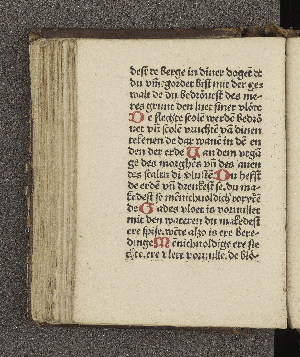 dest te berge in diner doget de
du vm̄egordet bist mit der ge=
walt de du bedrōuest des me=
res grunt den luet siner vlōte
De slegte scolē werdē bedrō
uet vn̄ scolē vruchtē vā dinen
tekenen de dar wanē in dē en
den der erde Uan dem vtgā
ge des morghēs vn̄ des auen
des scaltu di Du hefst
de erdē vn̄ drenkest se, du ma=
kedest se mēnichuoldich
de Gades vloet is voruullet
mit den wateren du makedest
ere spise, wēte also is ere bere=
dinge Mēnichuoldige ere sle
chte, ere vloet voruulle, de blō=